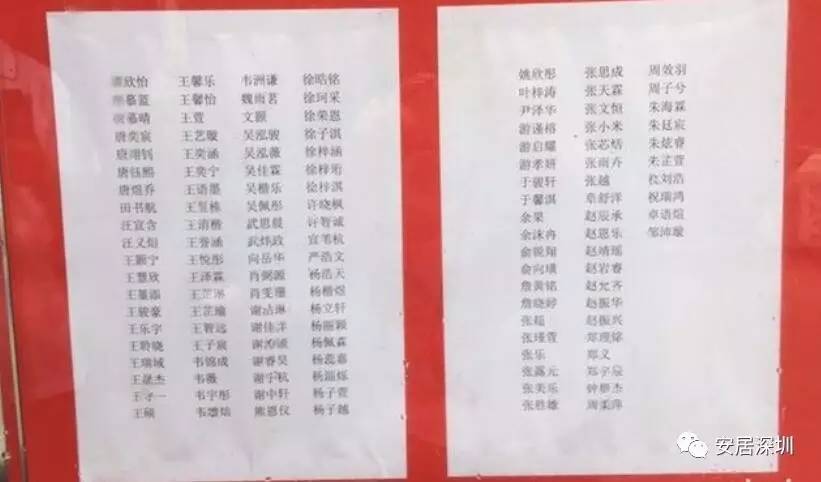 欣怡 王馨乐 韦洲谦 徐晧铭
慕蓝 王馨怡 魏雨茗 徐珂采
慕晴 王萱 文颢 徐荣恩
唐奕宸 王艺璇 吴泓骏 徐子淇
唐翊钊 王奕涵 吴泓薇 徐梓涵
唐钰熙 王奕宁 吴佳霖 徐梓珩
唐煜乔 王语墨 吴楷乐 徐梓淇
田书航 王昱栋 吴佩彤 许晓枫
汪宣含 王清楷 武思毅 许智诚
汪义烜 王誉涵 武炜政 宣苇杭
王颢宁 王悦彤 向岳华 严浩文
王慧欣 王泽霖 肖弼源 杨浩天
王馨添 王芷琳 肖雯珊 杨楷煜
王骏豪 王芷瑜 琳 杨立轩
王乐宇 王智远 谢佳洋 杨丽颖
王聆晓 王子宸 杨佩霖
王瑞域 韦锦成 谢睿昊 杨蕊嘉
王晟杰 韦薇 谢宇杭 杨
王一 韦宇彤 谢中轩 杨子萱
王硕 韦雄焙 熊恩仪 杨子越
姚欣彤 张思成 周效羽
叶梓涛 张天霖 周子兮
尹泽华 张文恒 朱海霖
游谨榕 张小米 朱廷宸
游启耀 张芯恬 朱炫睿
游孝妍 张雨卉 朱芷萱
于骏轩 张越 刘浩
于馨淇 章舒洋 祝瑞鸿
余果 赵宸承 卓语煊
余沫冉 赵恩乐 邹沛璇
俞锐翔 赵靖瑶
俞向璜 赵岩睿
詹黄铭 赵允齐
詹晓婷 赵振华
张超 赵振兴
张瑾萱 郑理镓
张乐 郑义
张露元 郑宇宸
张美乐 钟杰
张胜雄 周柔萍
安居深圳